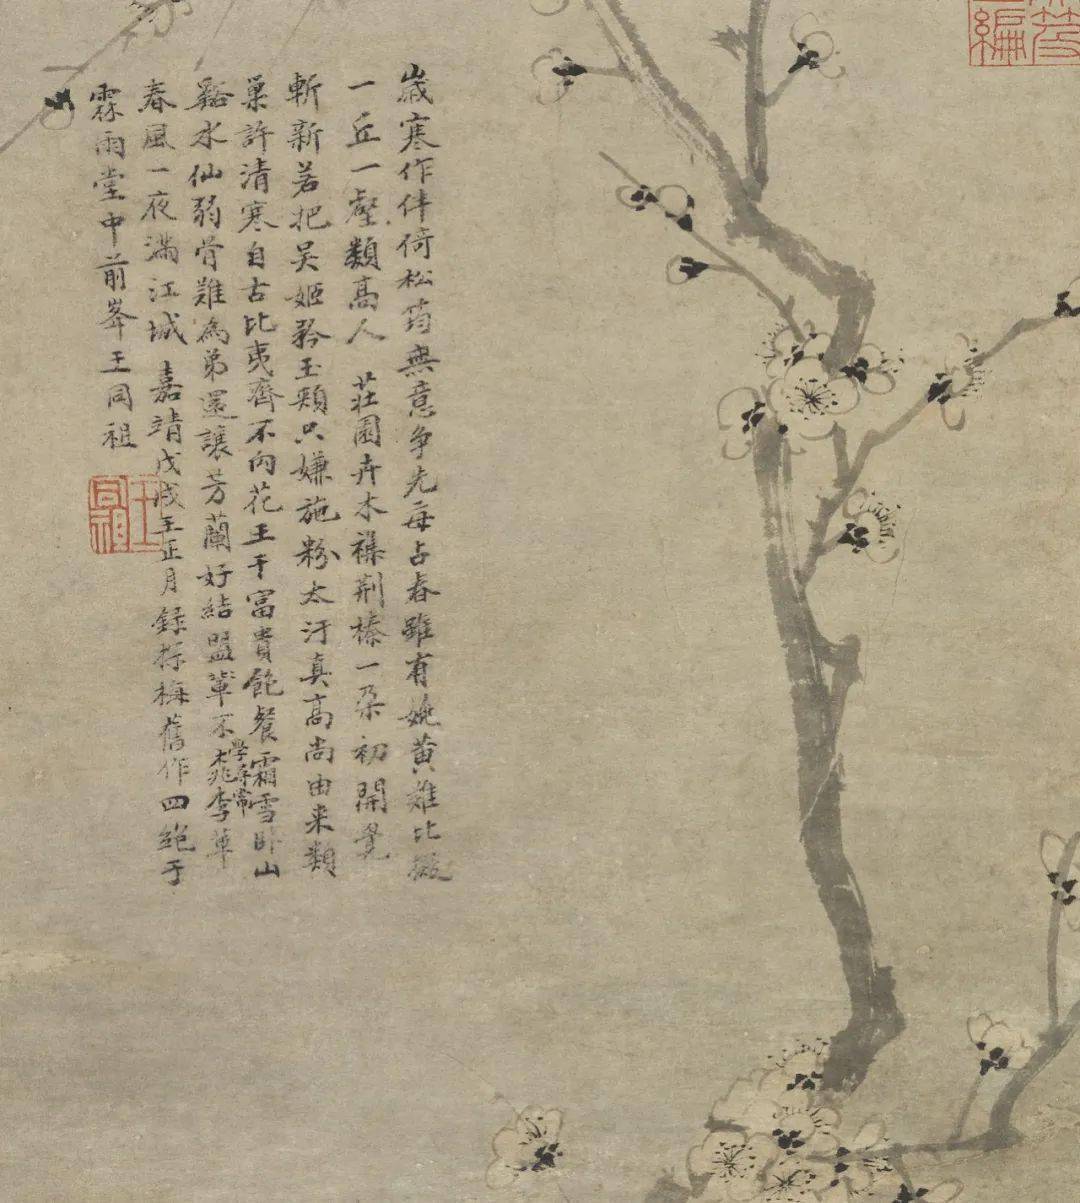 歲寒作伴倚松筠無意爭先每占春雖有姚黃難比擬
一丘一壑類高人 莊園卉木襍荆榛一朶初開覺
斬新若把吴姬矜玉頰只嫌施粉太汙真高尚由来類
巢許清寒自古比夷齊不向花王干富貴飽餐霜雪卧山
谿水仙弱骨難為弟還讓芳蘭好結盟軰不學尋常桃李軰
春風一夜滿江城 嘉靖戊戌王正月録探梅舊作四絶于
霖雨堂中前峯王同祖
王同祖
編